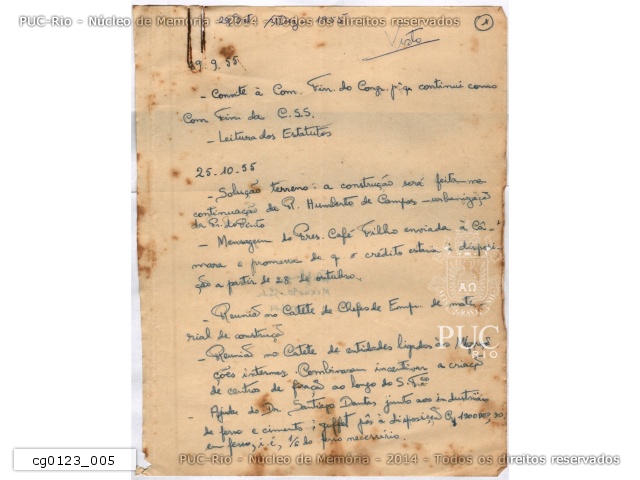 PUC-Rio - Núcleo de Memória - 2014 - Todos os direitos reservados
1
Visto
19.9.55
- Convite à Com. Fin. do Congr. p.ª q. continui como
Com. Fin. da C.S.S.
- Leitura dos Estatutos
25.10.55
- Solução terreno: a construção será feita na
continuação da R. Humberto de Campos - urbanização
da Pr. do Pinto
- Mensagem do Pres. Café Filho enviada à Câ-
mara e promessa de q. o crédito estaria à disposi-
ção a partir de 28 de outubro.
- Reunião no Catete de Chefes de Emp. de mate-
rial de construção
- Reunião no Catete de entidades ligadas às
ções internas. Combinaram incentivar a criação
de centros de ao longo do S. Fco
Ajuda do Dr. Santiago Dantas junto aos industriais
de ferro e cimento: pôs à disposição
em ferro, i.é, 1/3 do ferro necessário.
PUC
RIO
cg0123_005
PUC-Rio - Núcleo de Memória - 2014 - Todos os direitos reservados